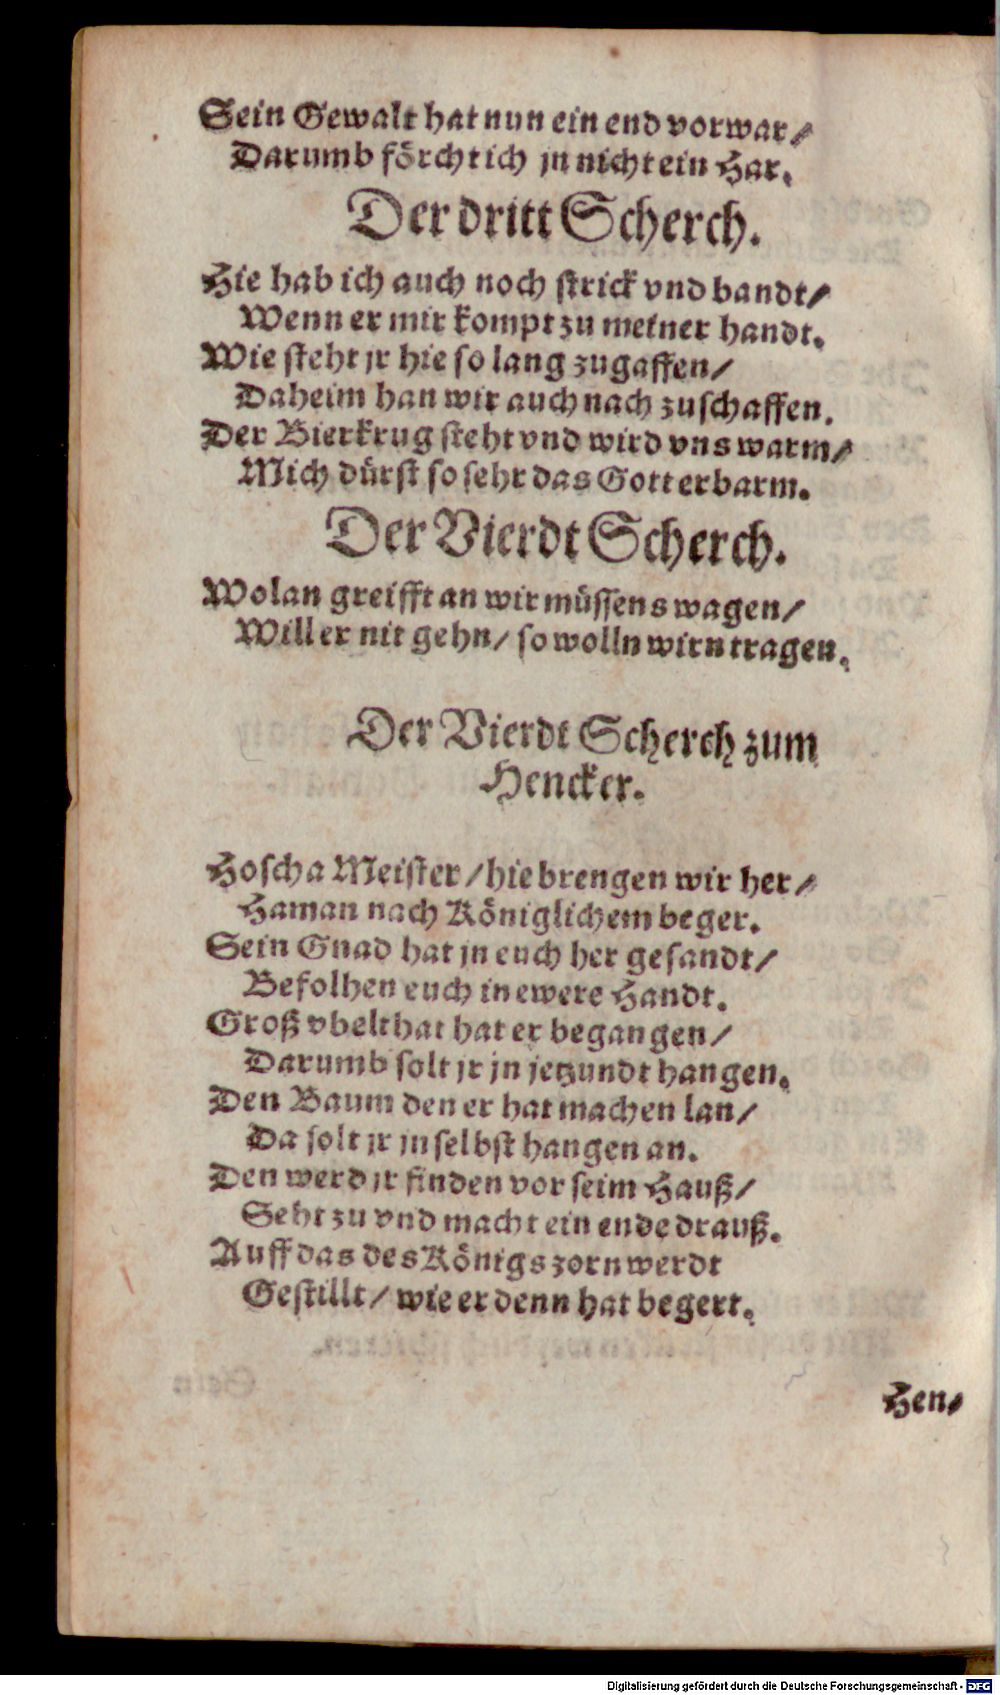 Sein Gewalt hat nun ein end vorwar/
Darumb förcht ich jn nicht ein Har.
Der dritt Scherch.
Hie hab ich auch noch strick vnd bandt/
Wenn er mir kompt zu meiner handt.
Wie steht jr hie so lang zugaffen/
Daheim han wir auch nach zuschaffen.
Der Bierkrug steht vnd wird vns warm/
Mich dürst so sehr das Gott erbarm.
Der Vierdt Scherch.
Wolan greifft an wir müssens wagen/
Will er nit gehn/ so wolln wirn tragen.
Der Vierdt Scherch zum
Hencker.
Hoscha Meister/ hie brengen wir her/
Haman nach Königlichem beger.
Sein Gnad hat jn euch her gesandt/
Befolhen euch in ewere Handt.
Groß vbelthat hat er begangen/
Darumb solt jr jn jetzundt hangen.
Den Baum den er hat machen lan/
Da solt jr jn selbst hangen an.
Den werd jr finden vor seim Hauß/
Seht zu vnd macht ein ende drauß.
Auff das des Königs zorn werdt
Gestillt/ wie er denn hat begert.
Hen/
Digitalisierung gefördert durch die Deutsche Forschungsgemeinschaft - DFG